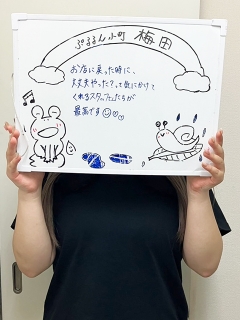 ぷるるん小町 梅田
お店に戻った時に、
大丈夫やった?って気にかけて
くれるスタッフさんたちが
最高です